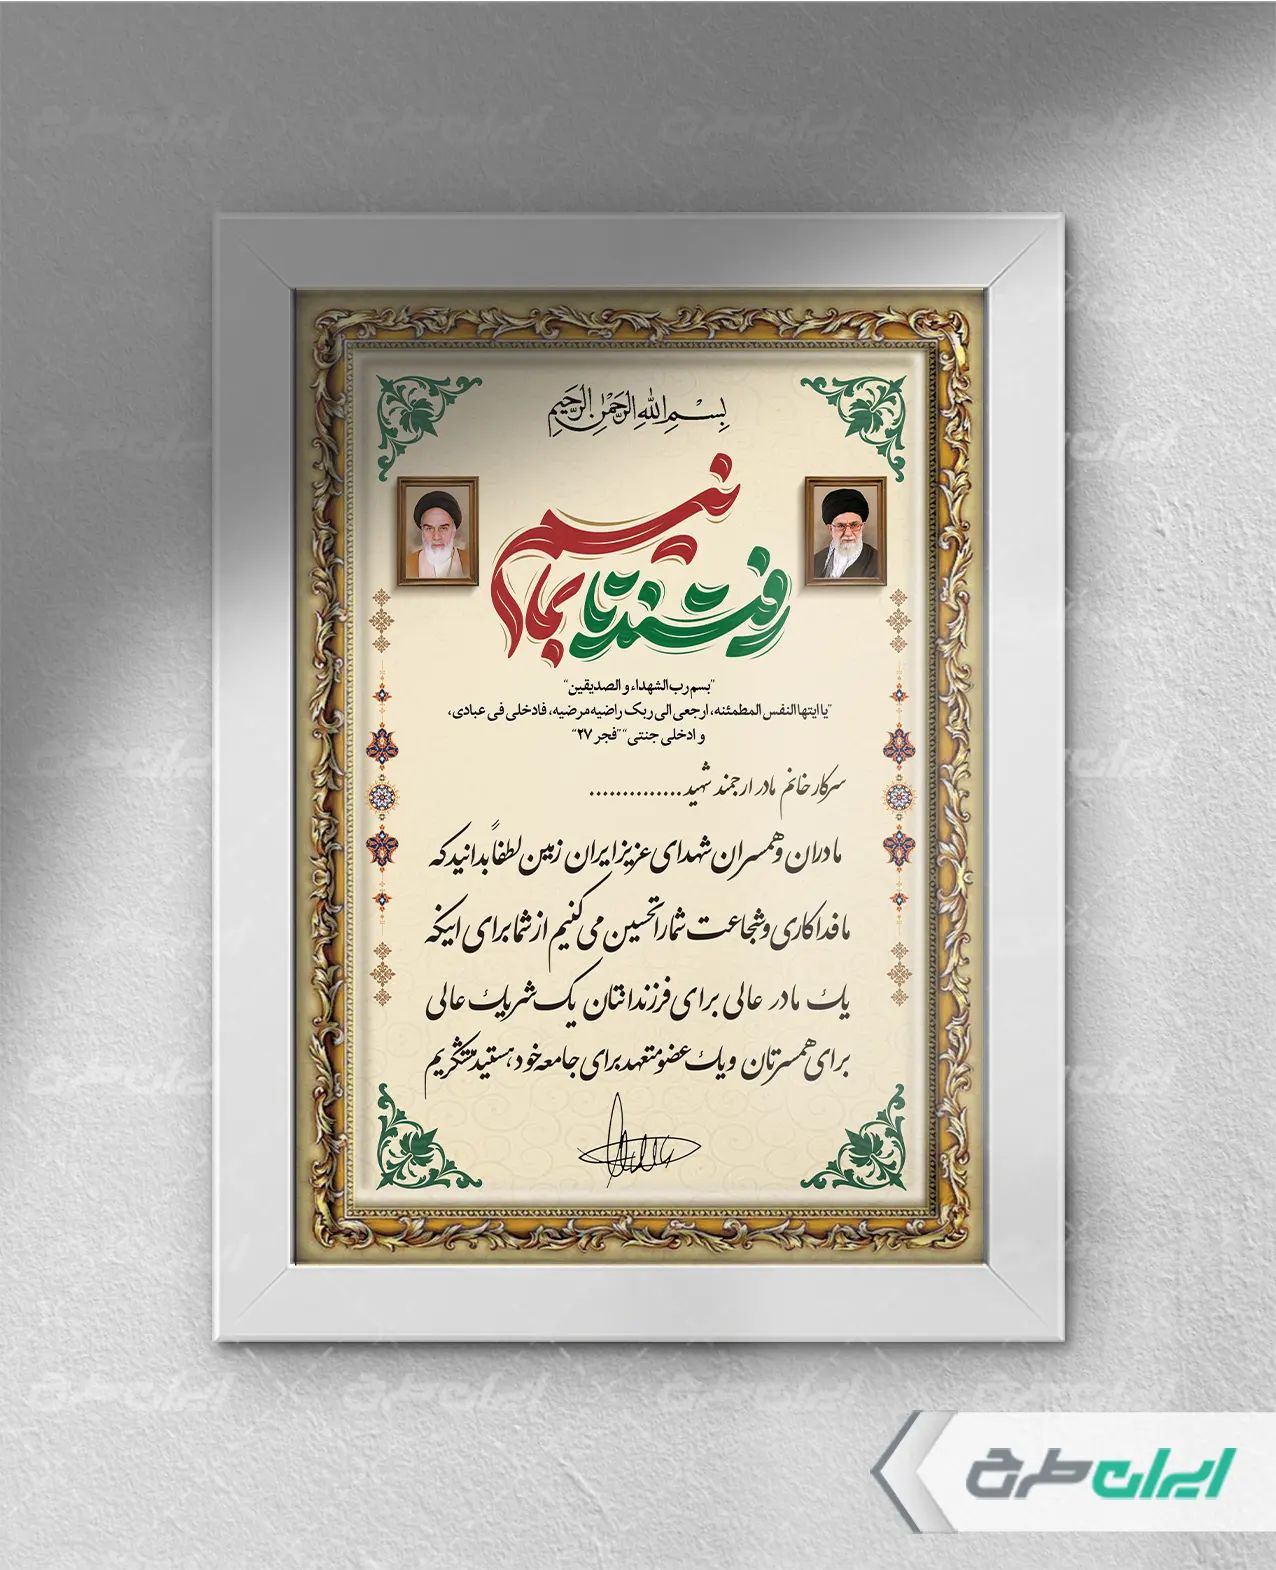 بِسْمِ اللهِ الرَّحْمٰنِ الرَّحِیمِ
رفتند تا بمانیم
"بسم رب الشهداء و الصدیقین"
"یا ایتها النفس المطمئنه، ارجعی الی ربک راضیه مرضیه، فادخلی فی عبادی،
و ادخلی جنتی" "فجر ۲۷"
سرکار خانم مادر ارجمند شهید..............
مادران و همسران شهدای عزیز ایران زمین لطفاً بدانید که
ما فداکاری و شجاعت شما را تحسین می کنیم از شما برای اینکه
یک مادر عالی برای فرزندانتان یک شریک عالی
برای همسرتان و یک عضو متعهد برای جامعه خود هستید متشکریم
ایران طرح